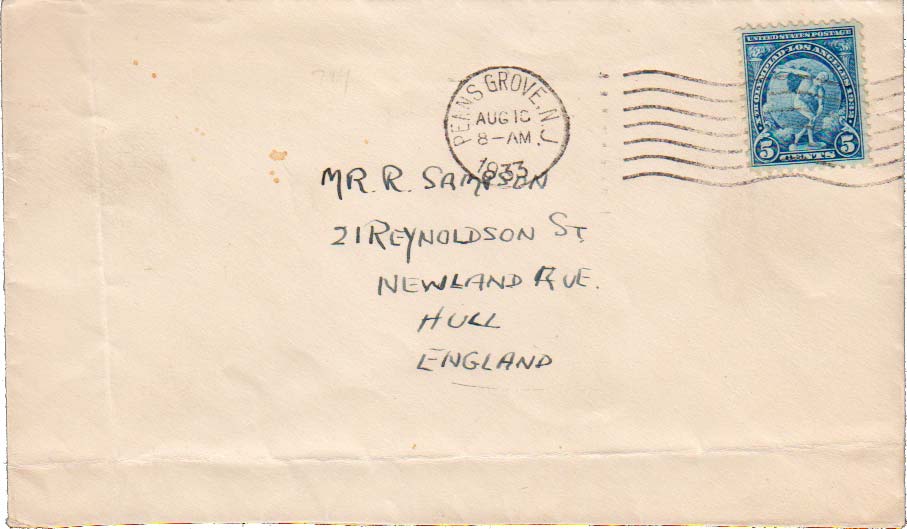 UNITED STATES POSTAGE
X TH OLYMPIAD·LOS ANGELES 1932
5 CENTS 5
PENNS GROVE, N.J.
AUG 16
8-AM
1933
MR. R. SAMPSON
21 REYNOLDSON ST,
NEWLAND AVE.
HULL
ENGLAND